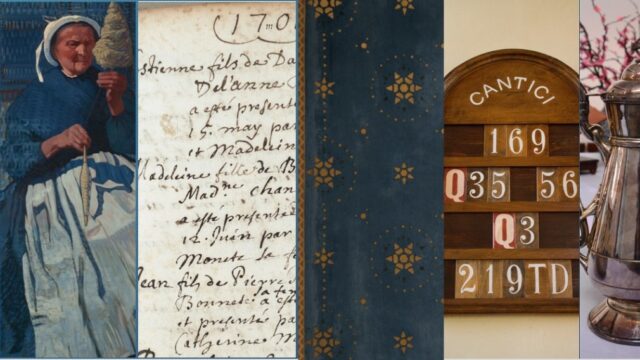 (170
Estienne fils de Da
Delanne
a esté presenté
15. may par
et Madelein
Madeleine fille de B
Mad.ne Chan
a esté presentée
12. Juin par
Monete la f
Jean fils de Pierre d
Bonnet a es
et presenté pa
Catherine M
CANTICI
169
Q35 56
Q3
219TD